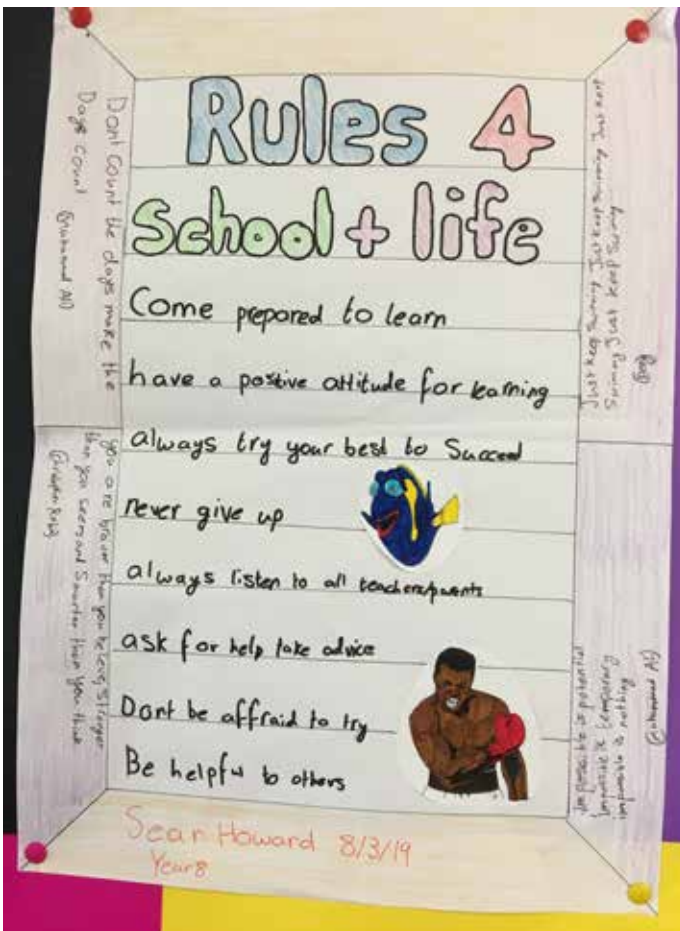 Rules 4
School + life
Come prepared to learn
have a positive attitude for learning
always try your best to Succeed
never give up
always listen to all teachers/parents
ask for help take advice
Dont be affraid to try
Be helpful to others
Sean Howard 8/3/19
Year 8
Dont count the days make the
Days count
you are braver than you believe, stronger
than you seem and Smarter than you think
Just keep Swimming Just keep Swimming Just keep
Swimming Just keep Swimming
Impossible is potential
Impossible is temporary
impossible is nothing